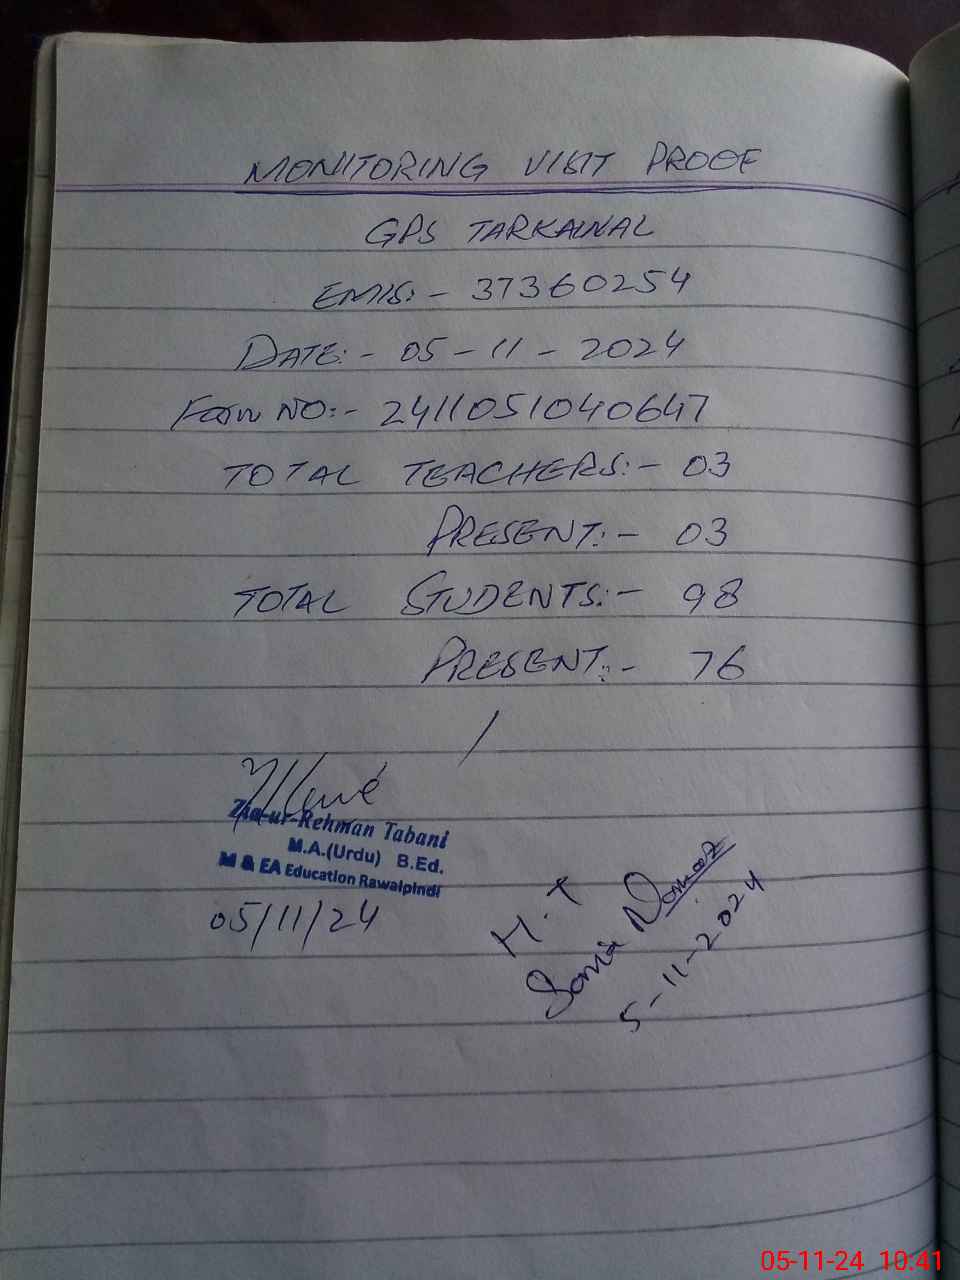 MONITORING VISIT PROOF
GPS TARKAINAL
EMIS:- 37360254
DATE:- 05-11-2024
Form NO:- 2411051040647
TOTAL TEACHERS:- 03
PRESENT:- 03
TOTAL STUDENTS:- 98
PRESENT:- 76
Zia-ur-Rehman Tabani
M.A.(Urdu) B.Ed.
M & EA Education Rawalpindi
05/11/24
H.T
Sonia
5-11-2024
05-11-24 10:41